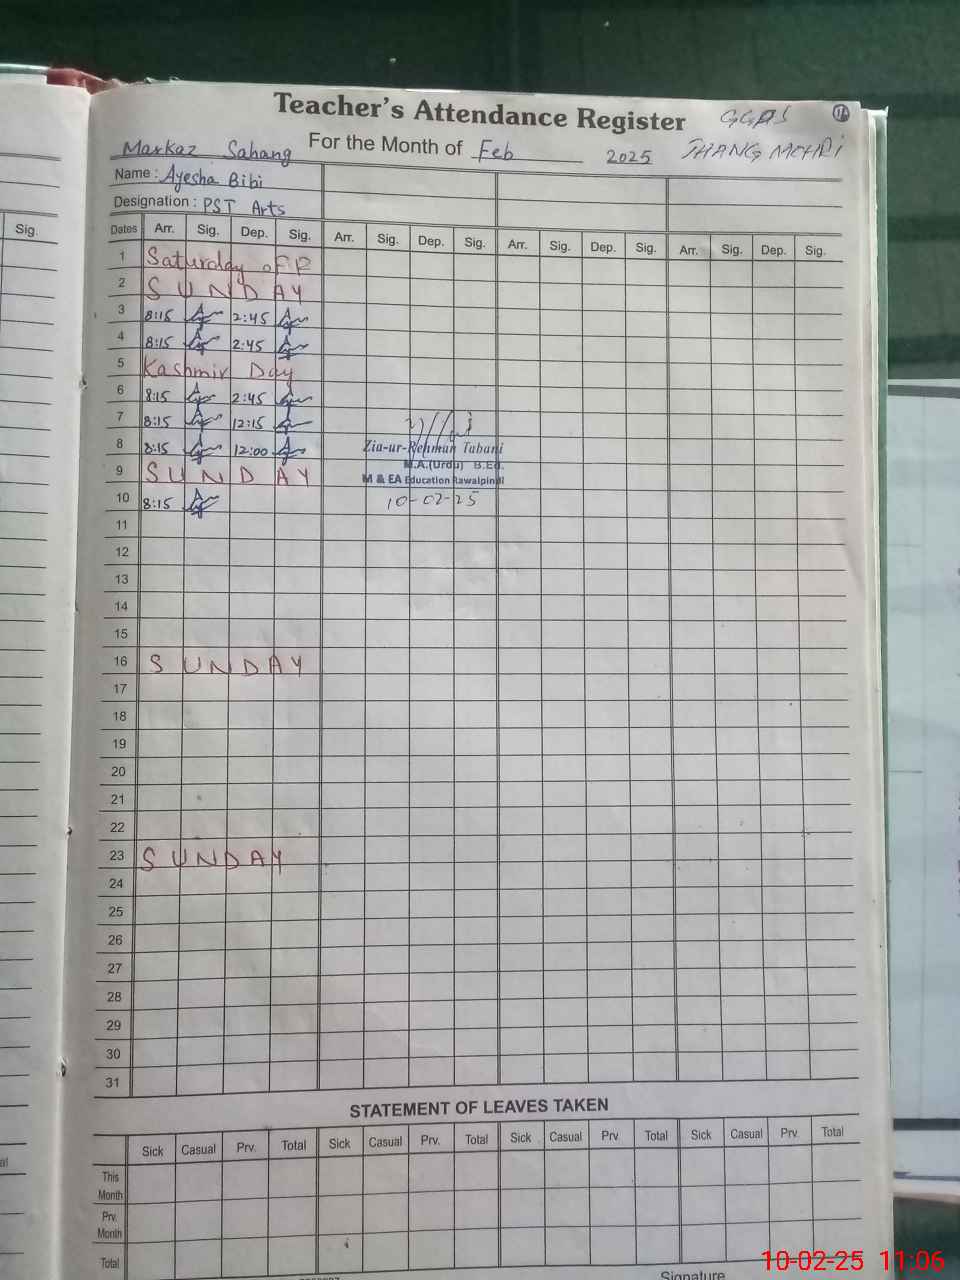 Teacher's Attendance Register
GGPS 16
Markaz Sahang For the Month of Feb 2025 JHANG MEHRI
Name : Ayesha Bibi
Designation : PST Arts
Sig. Dates Arr. Sig. Dep. Sig. Arr. Sig. Dep. Sig. Arr. Sig. Dep. Sig. Arr. Sig. Dep. Sig.
1 Saturday off
2 SUNDAY
3 8:15 2:45
4 8:15 2:45
5 Kashmir Day
6 8:15 2:45
7 8:15 12:15
8 8:15 12:00
Zia-ur-Rehman Tabani
M.A.(Urdu) B.Ed.
9 SUNDAY
M & EA Education Rawalpindi
10 8:15
10-02-25
11
12
13
14
15
16 SUNDAY
17
18
19
20
21
22
23 SUNDAY
24
25
26
27
28
29
30
31
STATEMENT OF LEAVES TAKEN
Sick Casual Prv. Total Sick Casual Prv. Total Sick Casual Prv. Total Sick Casual Prv. Total
This
Month
Prv.
Month
Total
Signature
10-02-25 11:06